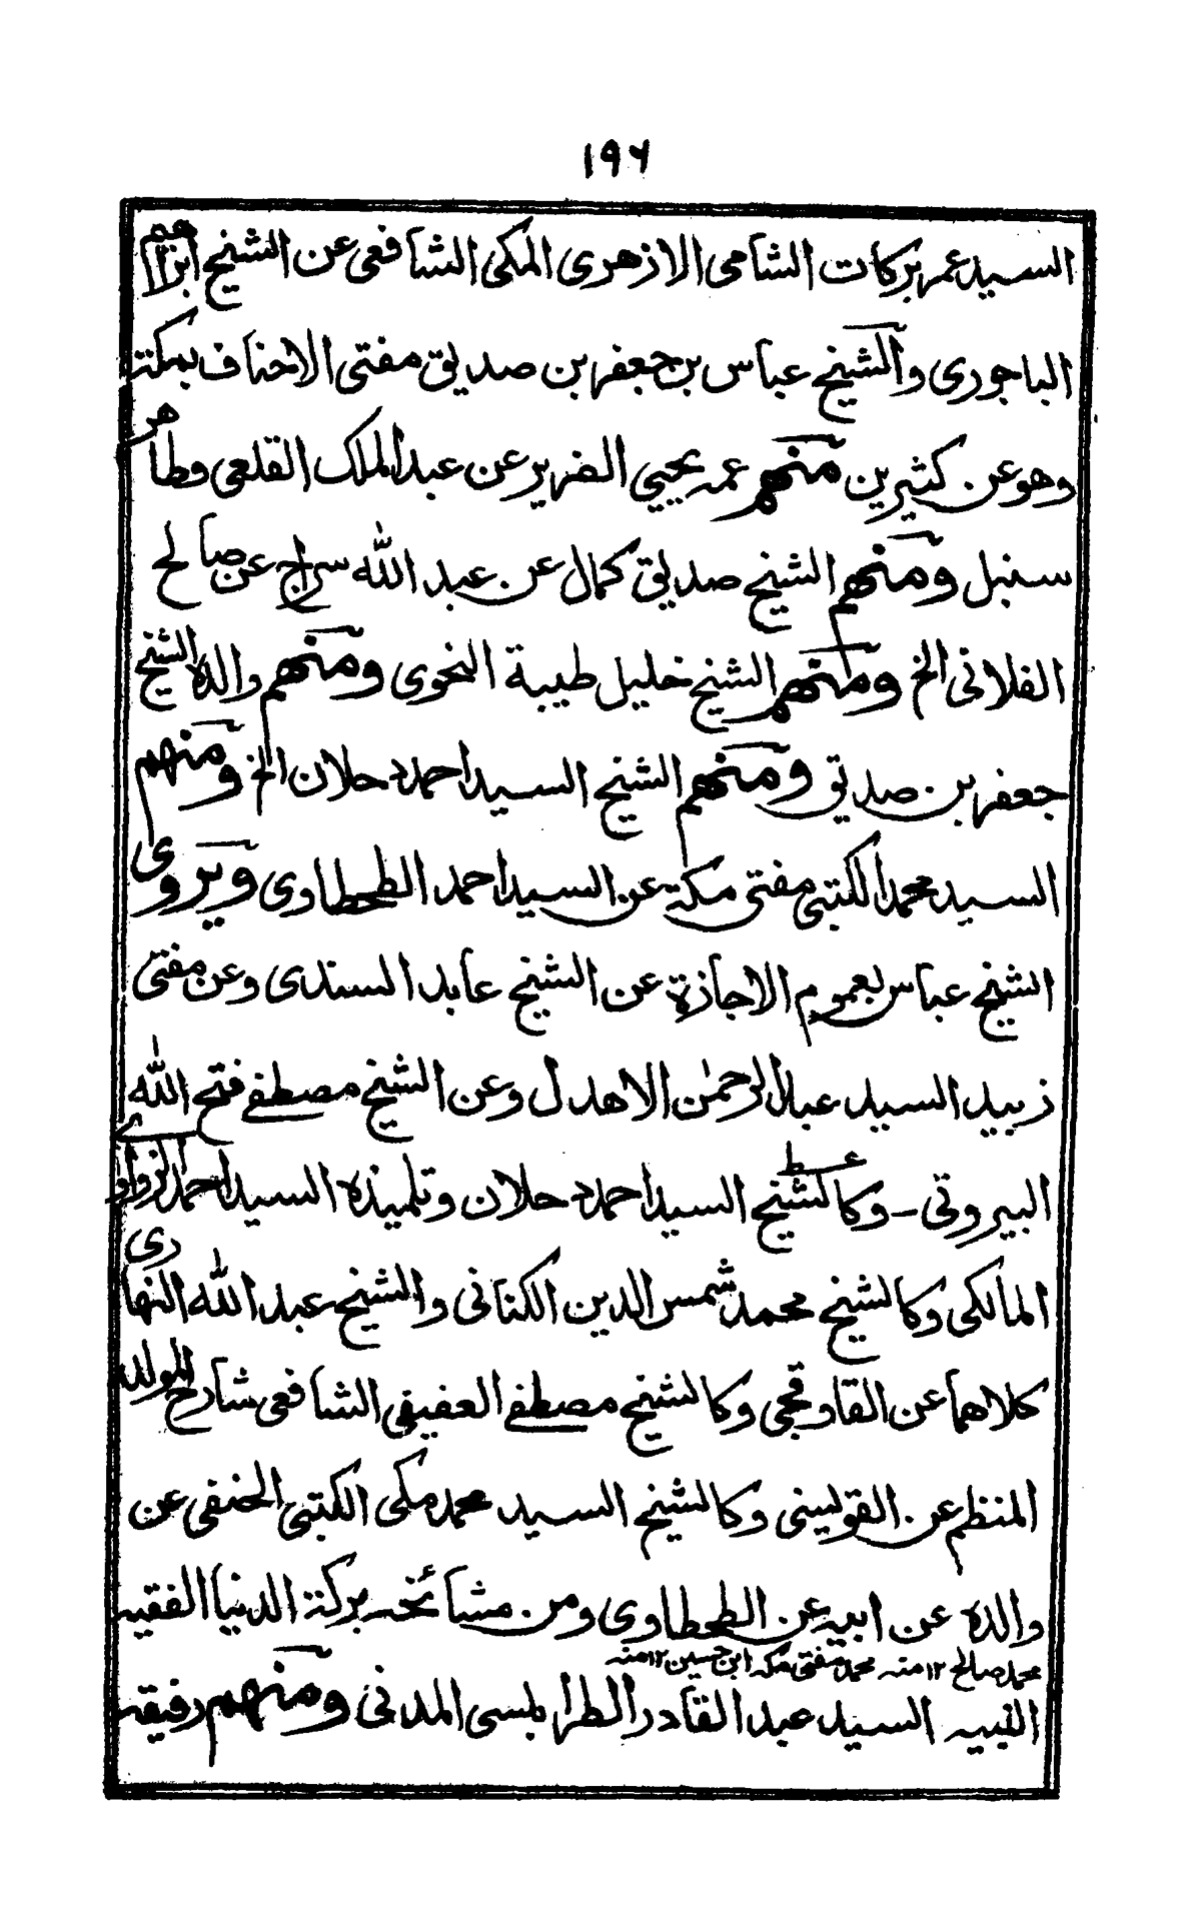 ١٩٦
السيد عمر بركات الشامى الازهرى المكى الشافعى عن الشيخ ابراهيم
الباجورى والشيخ عباس بن جعفر بن صديق مفتى الاحناف بمكة
وهو عن كثيرين منهم عمه يحيي الضرير عن عبد الملك القلعى وطاهر
سنبل ومنهم الشيخ صديق كمال عن عبد الله سراج عن صالح
الفلانى الخ ومنهم الشيخ خليل طيبة النحوى ومنهم والده الشيخ
جعفر بن صديق ومنهم الشيخ السيد احمد دحلان الخ ومنهم
السيد محمد الكتبى مفتى مكة عن السيد احمد الطحطاوى ويروى
الشيخ عباس بعموم الاجازة عن الشيخ عابد السندى وعن مفتى
زبيد السيد عبد الرحمٰن الاهدل وعن الشيخ مصطفے فتح الله
البيروتى - وكالشيخ السيد احمد دحلان وتلميذه السيد احمد الزواوى
المالكى وكالشيخ محمد شمس الدين الكنانى والشيخ عبد الله النهارى
كلاهما عن القاوقجى وكالشيخ مصطفے العفيفى الشافعى شارح المولد
المنظم عن القويسنى وكالشيخ السيد محمد مكى الكتبى الحنفى عن
والده عن ابيه عن الطحطاوى ومن مشائخه بركة الدنيا الفقيه
محمد صالح ١٢ منه محمد مفتى مكه ابن حسين ١٢ منه
النبيه السيد عبد القادر الطرابلسى المدنى ومنهم رفيقه